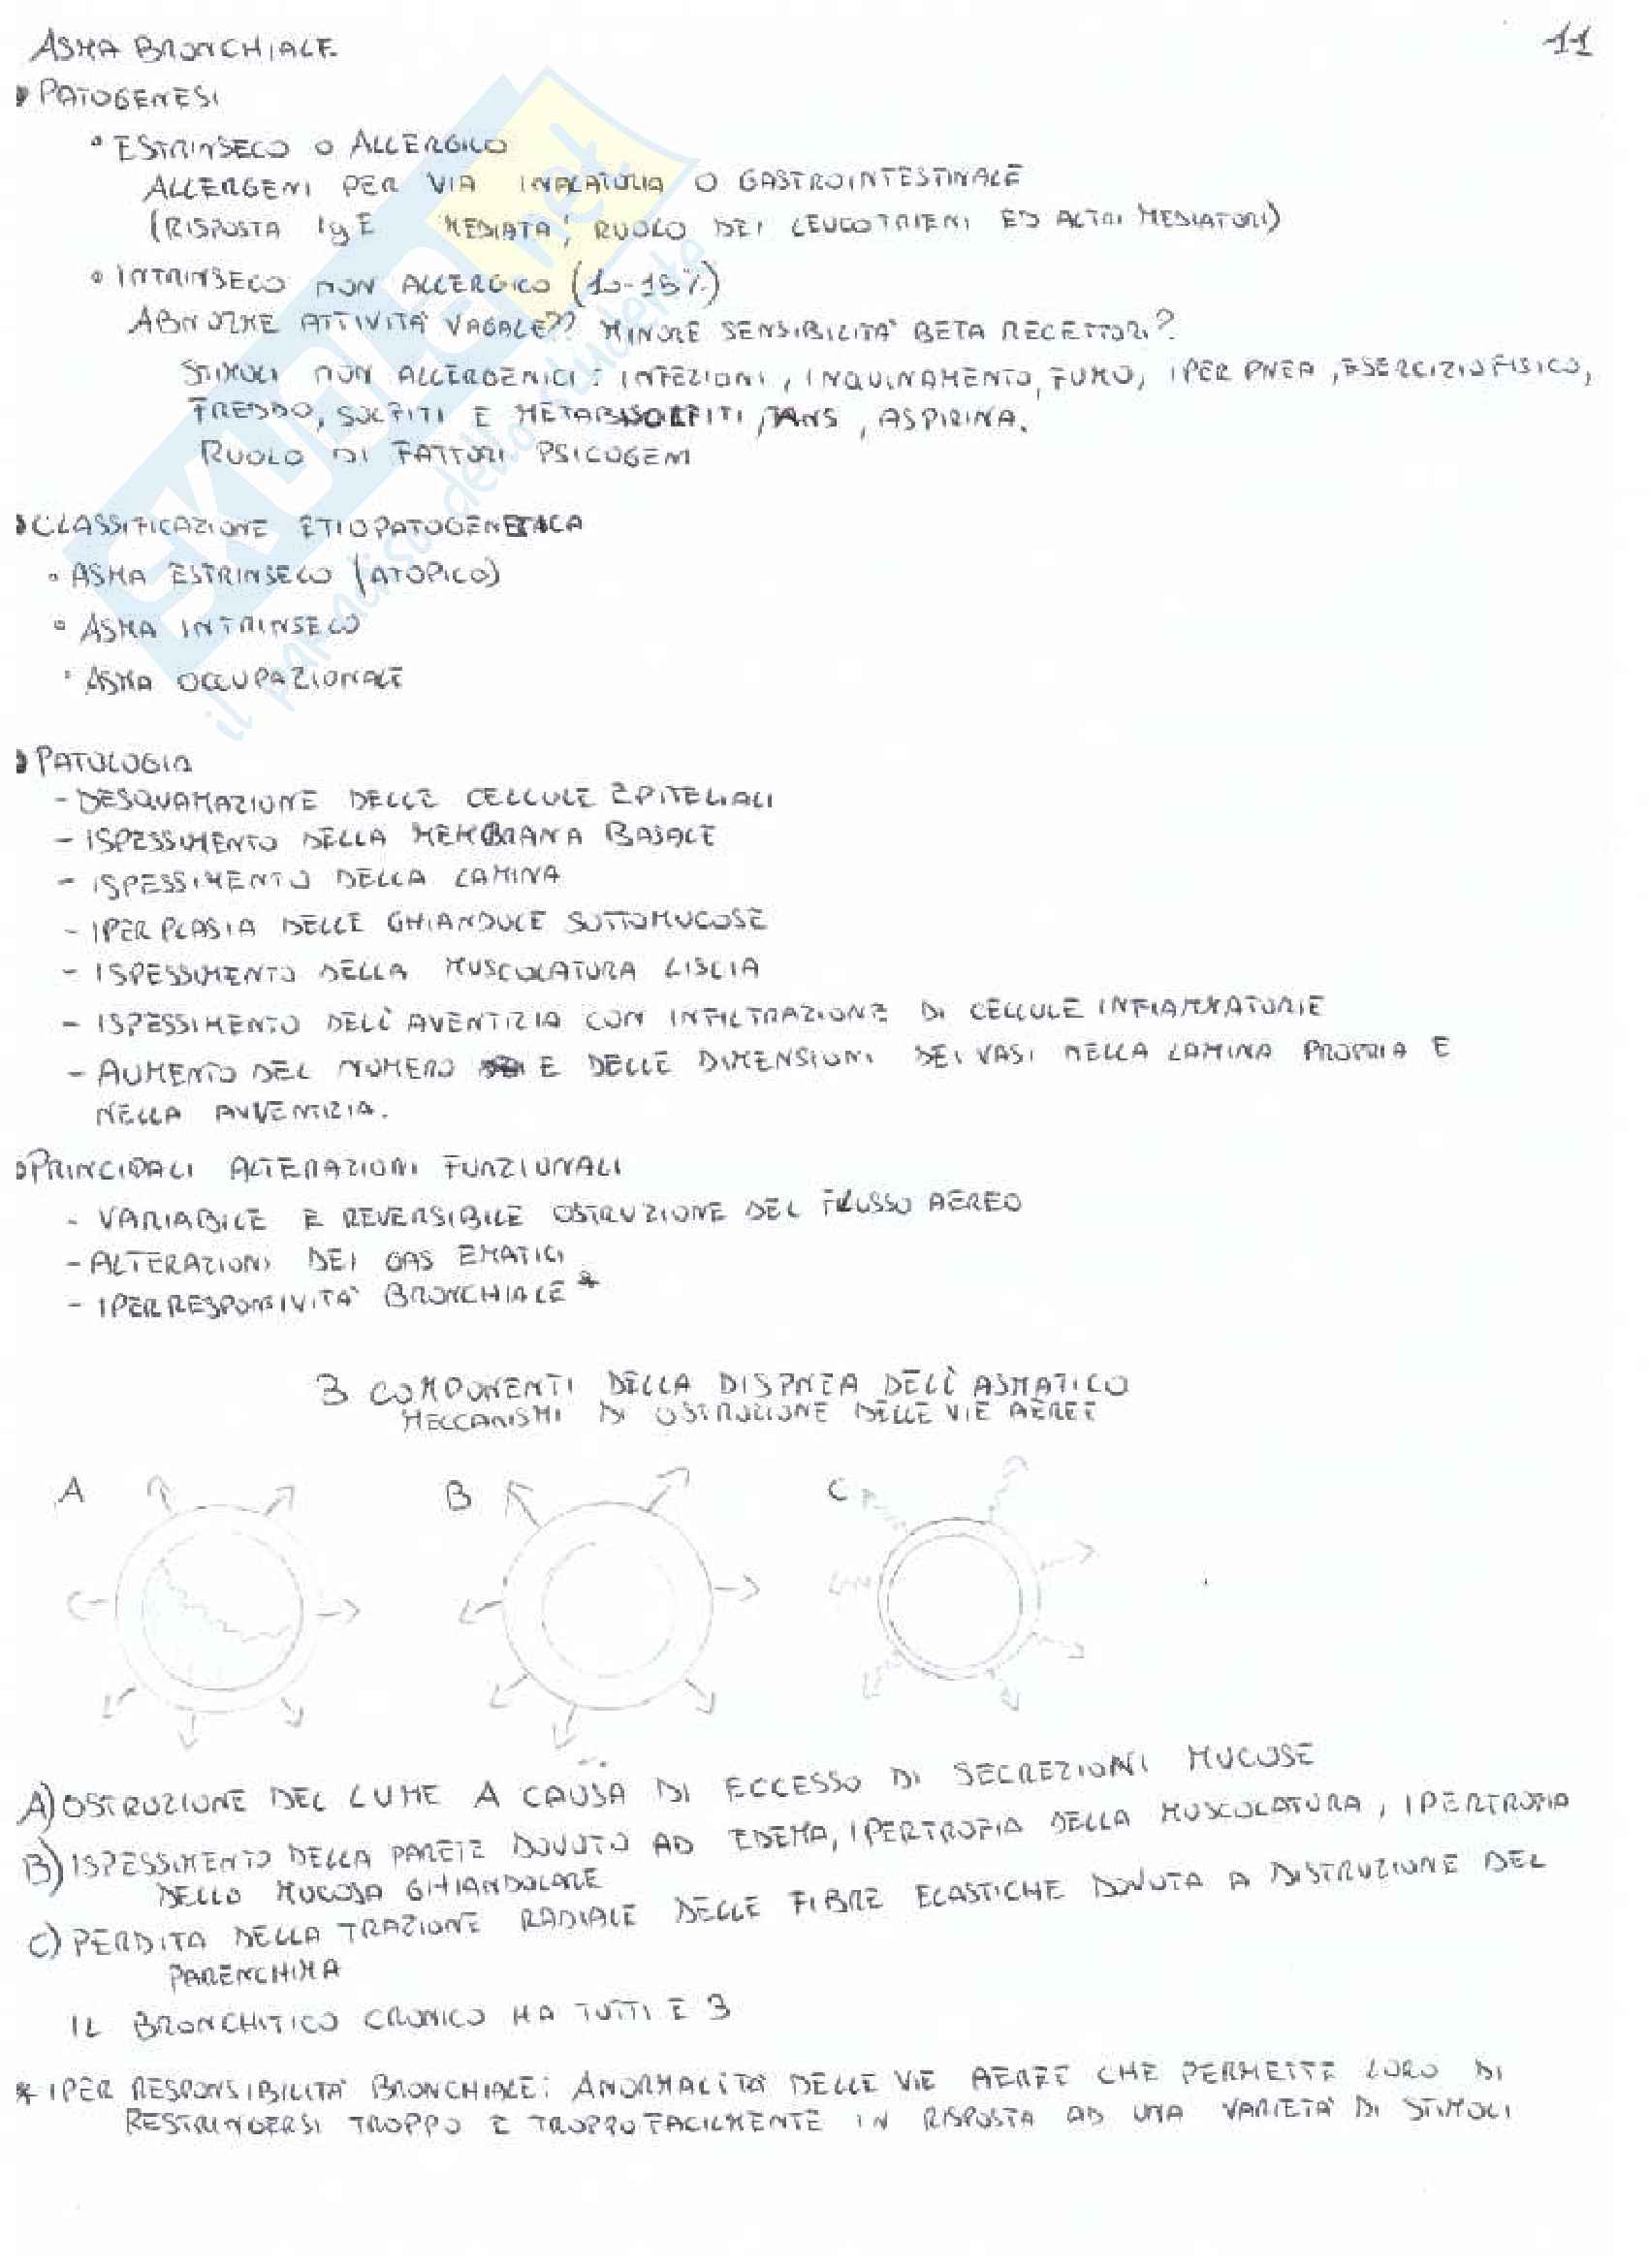 11
ASMA BRONCHIALE
PATOGENESI
° ESTRINSECO O ALLERGICO
ALLERGENI PER VIA INALATORIA O GASTROINTESTINALE
(RISPOSTA IgE MEDIATA, RUOLO DEI LEUCOTRIENI ED ALTRI MEDIATORI)
° INTRINSECO NON ALLERGICO (10-15%)
ABNORME ATTIVITA' VAGALE?? MINORE SENSIBILITA' BETA RECETTORI?
STIMOLI NON ALLERGENICI: INFEZIONI, INQUINAMENTO, FUMO, IPERPNEA, ESERCIZIO FISICO,
FREDDO, SOLFITI E METABISOLFITI, , ASPIRINA.
RUOLO DI FATTORI PSICOGENI
CLASSIFICAZIONE ETIOPATOGENETICA
° ASMA ESTRINSECO (ATOPICO)
° ASMA INTRINSECO
° ASMA OCCUPAZIONALE
PATOLOGIA
- DESQUAMAZIONE DELLE CELLULE EPITELIALI
- ISPESSIMENTO DELLA MEMBRANA BASALE
- ISPESSIMENTO DELLA LAMINA
- IPERPLASIA DELLE GHIANDOLE SOTTOMUCOSE
- ISPESSIMENTO DELLA MUSCOLATURA LISCIA
- ISPESSIMENTO DELL'AVENTIZIA CON INFILTRAZIONE DI CELLULE INFIAMMATORIE
- AUMENTO DEL NUMERO E DELLE DIMENSIONI DEI VASI NELLA LAMINA PROPRIA E
NELLA AVVENTIZIA.
PRINCIPALI ALTERAZIONI FUNZIONALI
- VARIABILE E REVERSIBILE OSTRUZIONE DEL FLUSSO AEREO
- ALTERAZIONI DEI GAS EMATICI
- IPERRESPONSIVITA' BRONCHIALE *
3 COMPONENTI DELLA DISPNEA DELL'ASMATICO
MECCANISMI DI OSTRUZIONE DELLE VIE AEREE
A B C
A) OSTRUZIONE DEL LUME A CAUSA DI ECCESSO DI SECREZIONI MUCOSE
B) ISPESSIMENTO DELLA PARETE DOVUTO AD EDEMA, IPERTROFIA DELLA MUSCOLATURA, IPERTROFIA
DELLO MUCOSA GHIANDOLARE
C) PERDITA DELLA TRAZIONE RADIALE DELLE FIBRE ELASTICHE DOVUTA A DISTRUZIONE DEL
PARENCHIMA
IL BRONCHITICO CRONICO HA TUTTI E 3
* IPER RESPONSIBILITA' BRONCHIALE: ANORMALITA' DELLE VIE AEREE CHE PERMETTE LORO DI
RESTRINGERSI TROPPO E TROPPO FACILMENTE IN RISPOSTA AD UNA VARIETA' DI STIMOLI
SKUOLA.net
il paradiso dello studente